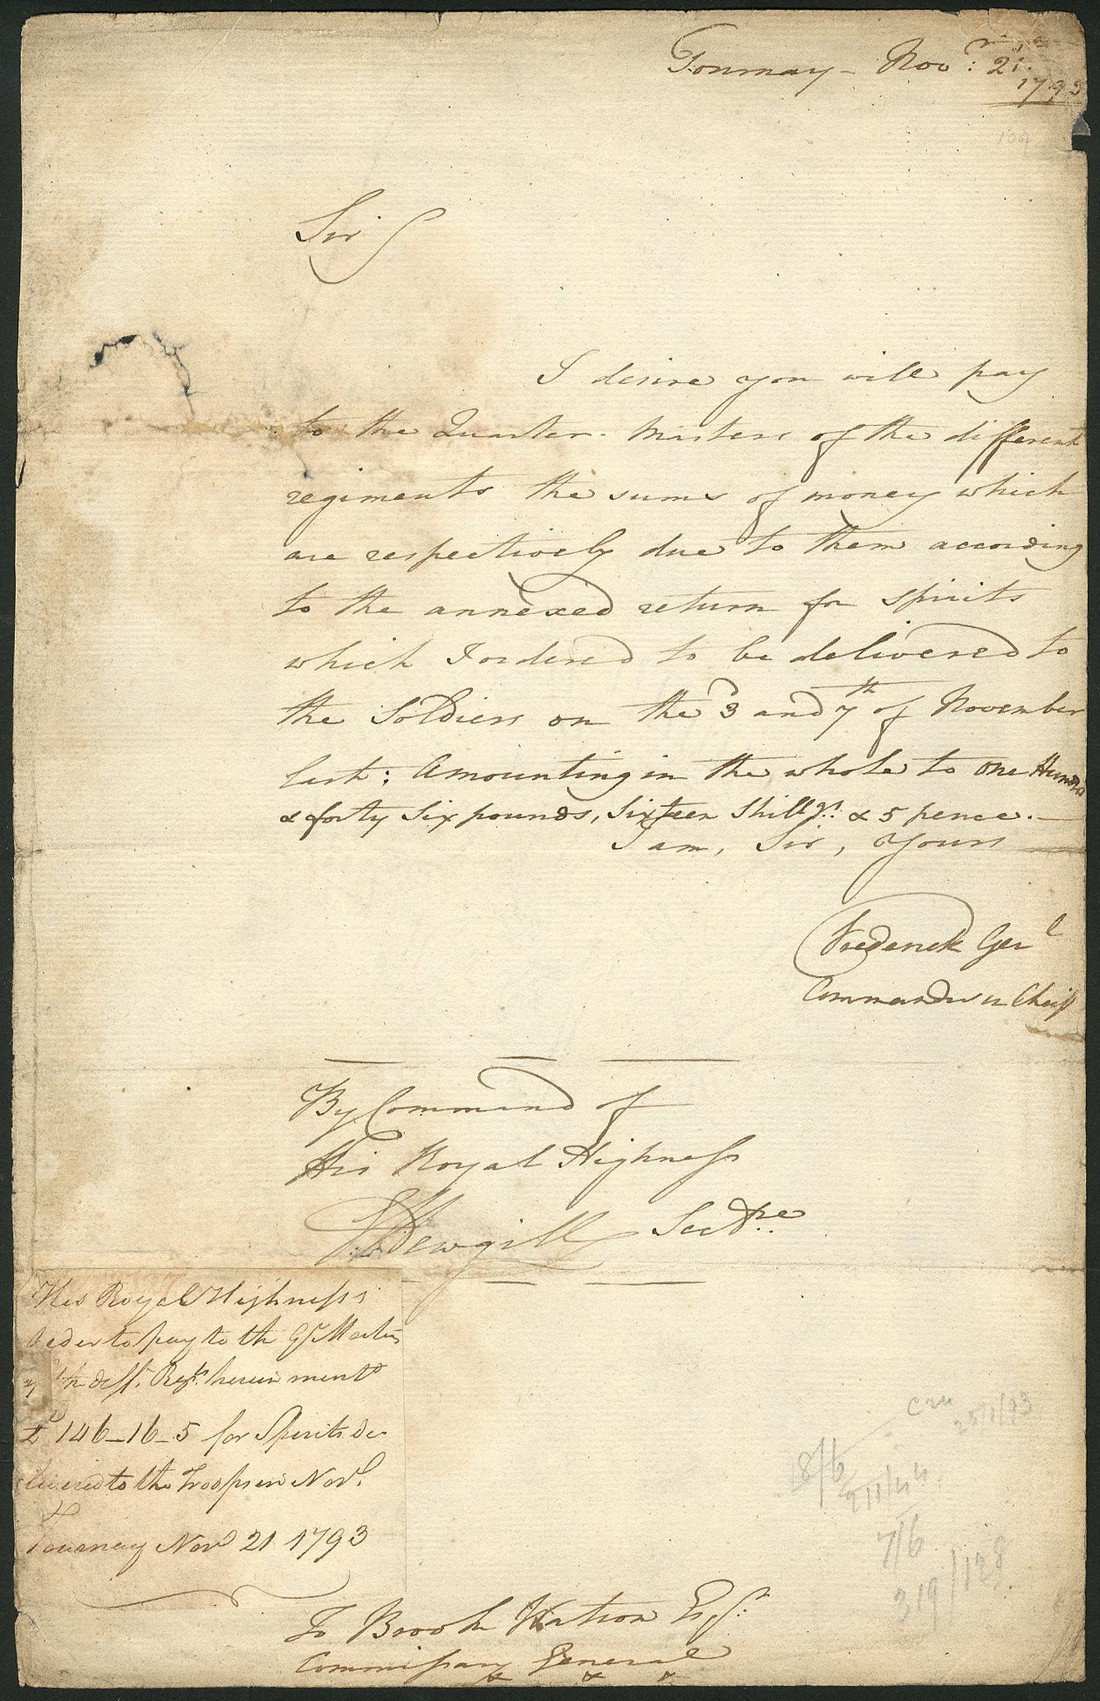 Tournay - Novr: 21st
1793
109
Sir
I desire you will pay
to the Quarter-Masters of the different
regiments the sums of money which
are respectively due to them according
to the annexed return for spirits
which I ordered to be delivered to
the Soldiers on the 3d and 7th of November
last; Amounting in the whole to One Hundd
& forty Six pounds, Sixteen Shillgs: & 5 pence.
I am, Sir, Yours
Frederick Genl
Commander in Chief
By Command of
His Royal Highness
Hewgill Sectre
His Royal Highness's
order to pay to the Qr Masters
of the difft. Regts. herein mentd
£146_16_5 for Spirits de
livered to the Troops in Novr.
Tournay Novr 21 1793
8/6
7/6
319/128
To Brook Watson Esqr:
Commissary General
&c &c